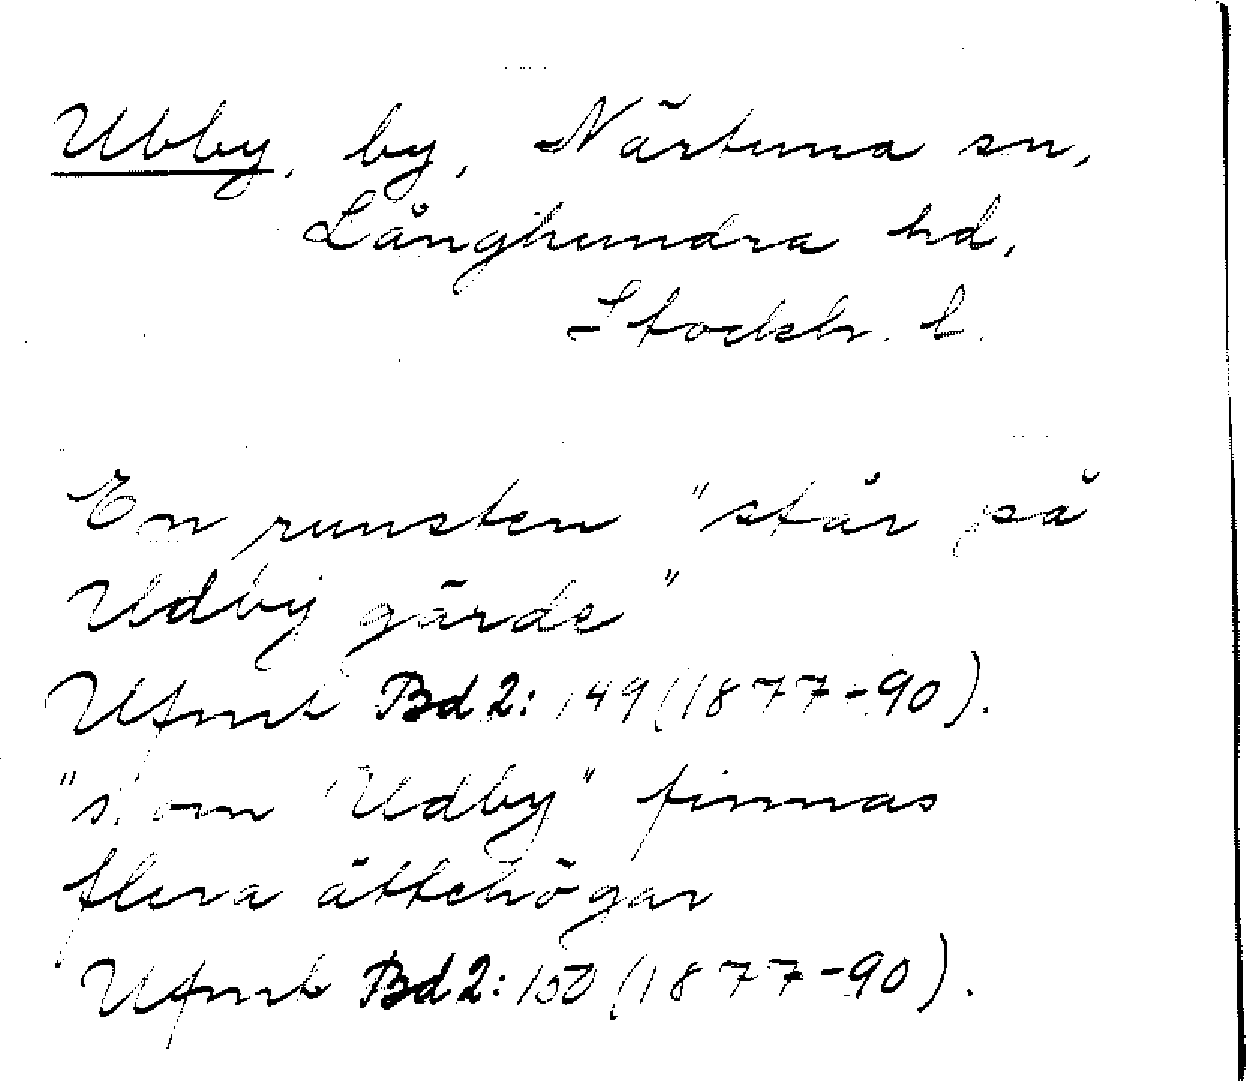 Ubby, by, Närtuna sn,
Långhundra hd,
Stockh. l.
En runsten "står på
Udby gärde"
Ufmt Bd 2: 149 (1877-90).
"s. om Udby" finnas
flera ättehögar
Ufmt Bd 2: 150 (1877-90).